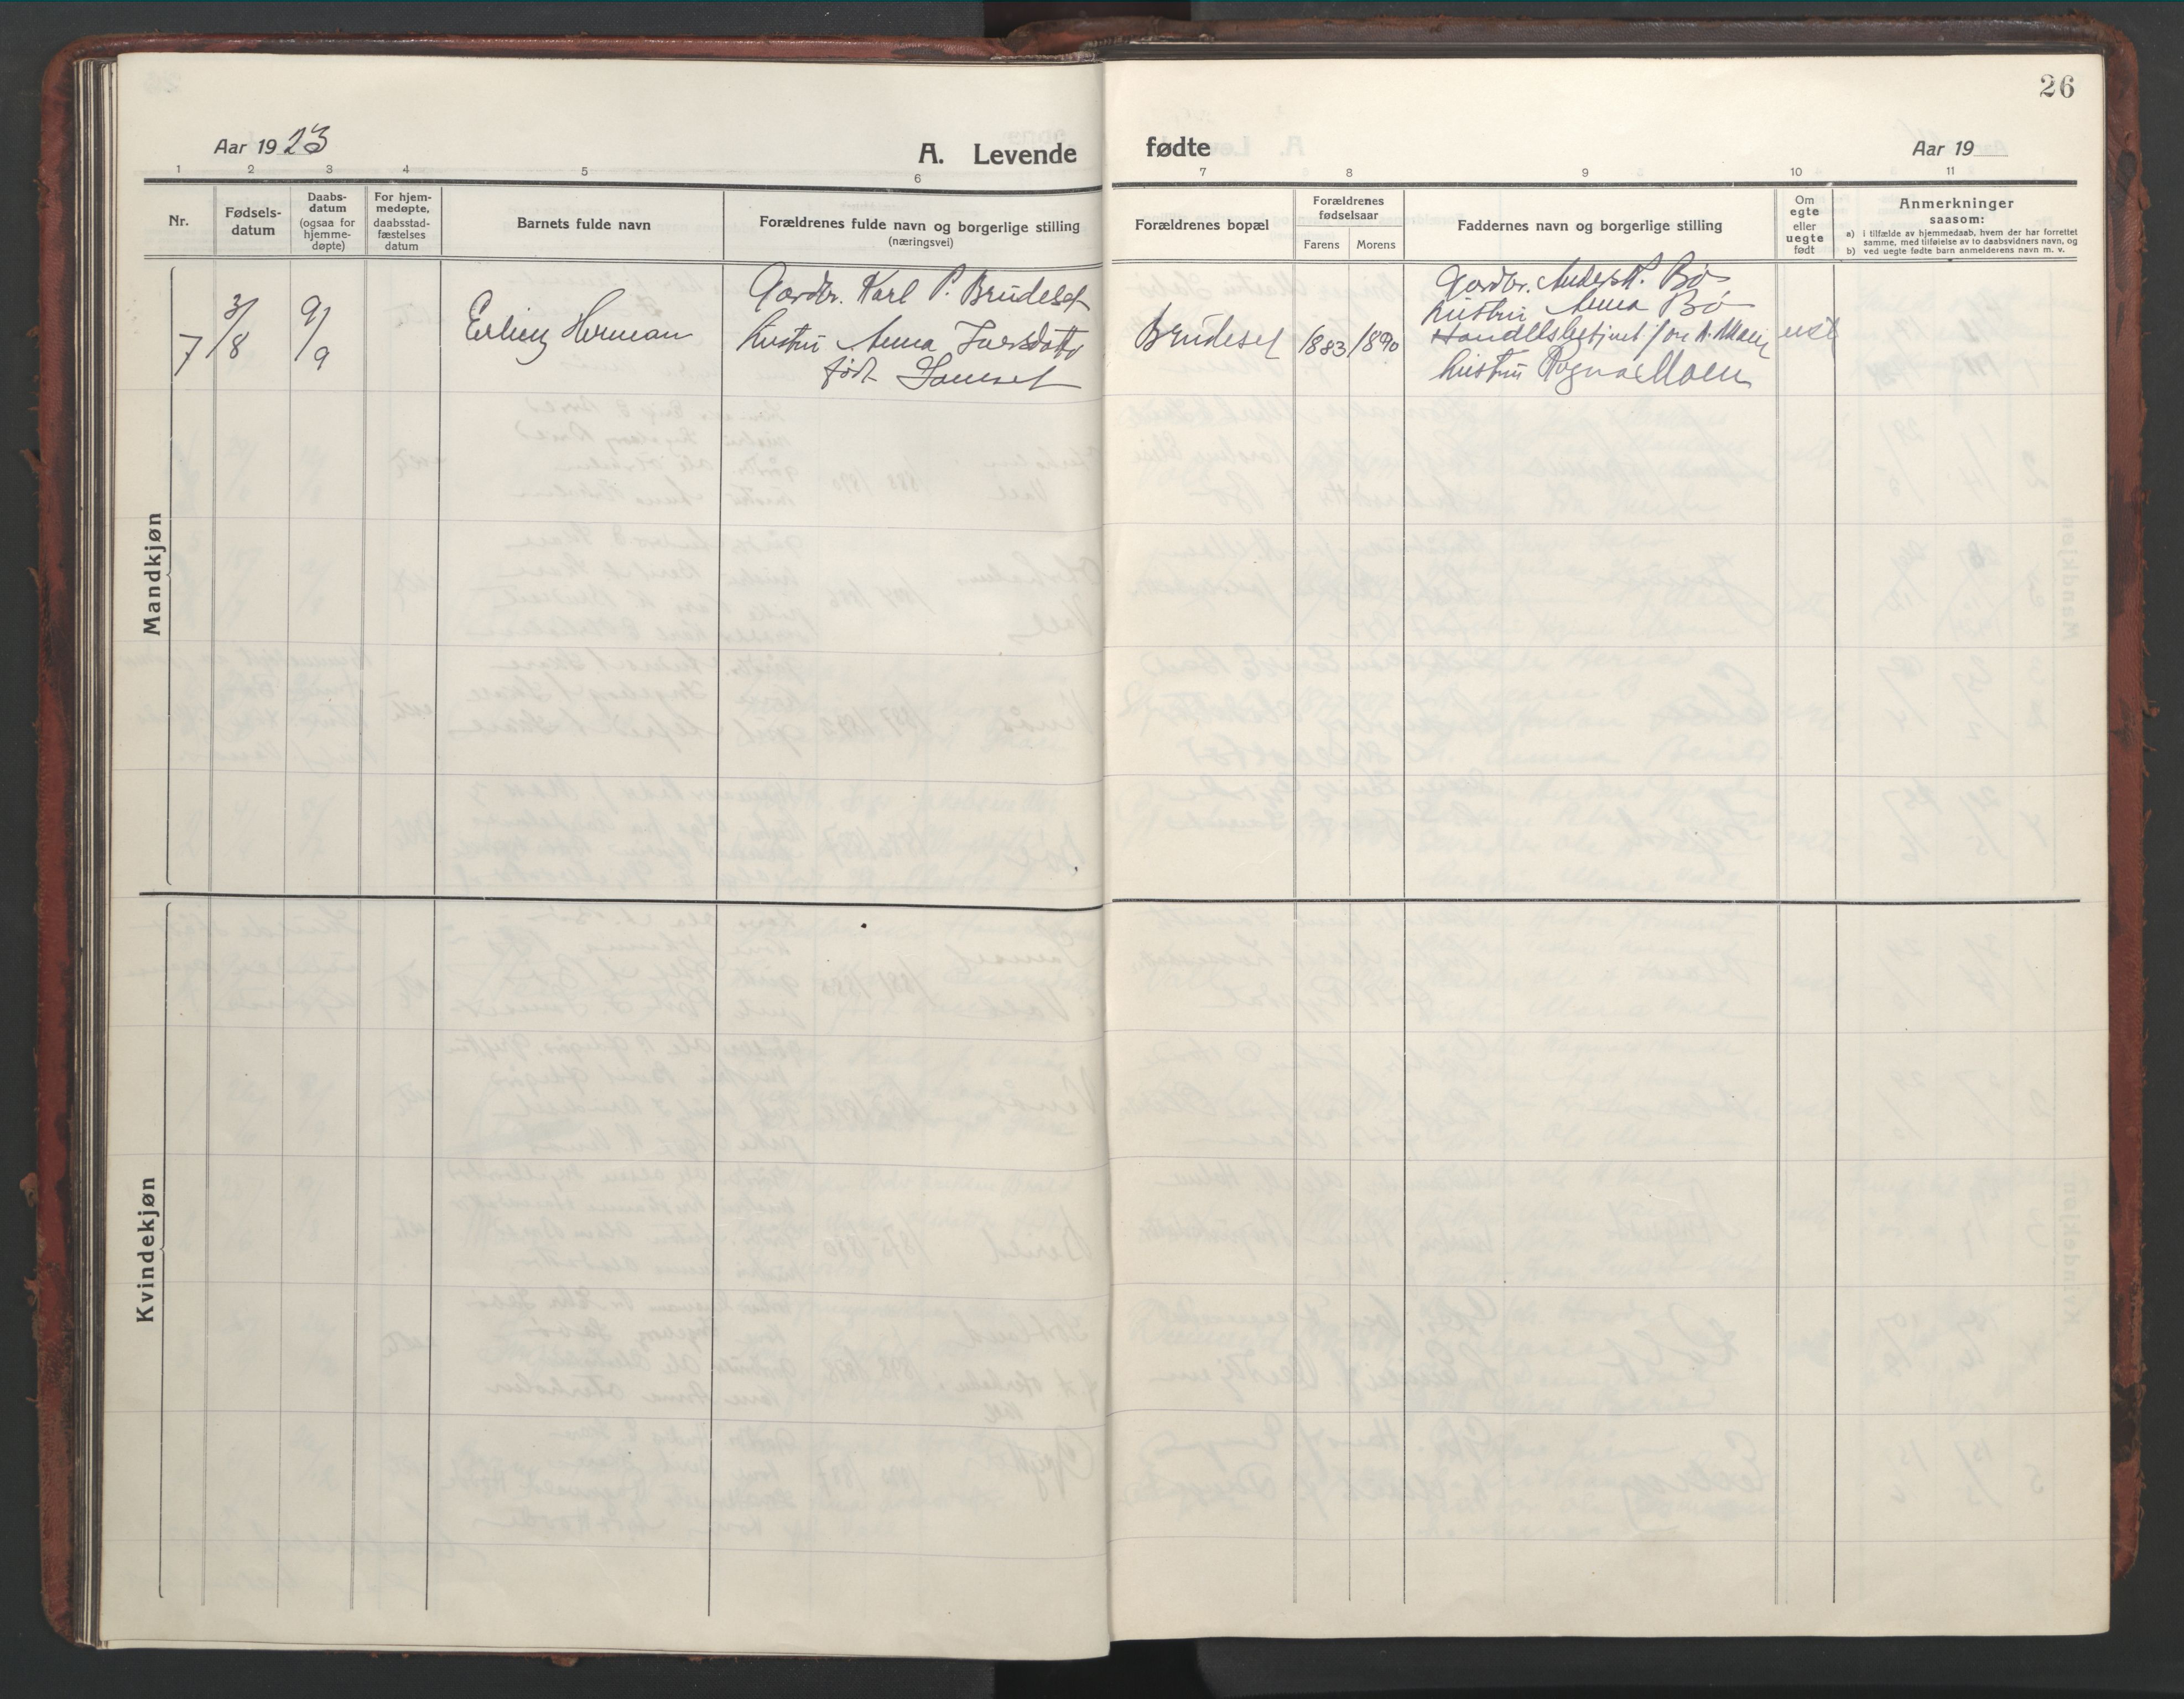 26
Aar 1923
A. Levende
fødte
Aar 19
1 2 3 4 5 6 7 8 9 10 11
Nr.
Fødsels-
datum
Daabs-
datum
(ogsaa for
hjemme-
døpte)
For hjem-
medøpte,
daabsstad-
fæstelses
datum
Barnets fulde navn
Forældrenes fulde navn og borgerlige stilling
(næringsvei)
Forældrenes bopæl
Forældrenes
fødselsaar
Farens Morens
Faddernes navn og borgerlige stilling
Om
egte
eller
uegte
født
Anmerkninger
saasom:
a) i tilfælde av hjemmedaab, hvem der har forrettet
samme, med tilføielse av to daabsvidners navn, og
b) ved uegte fødte barn anmelderens navn m. v.
Mandkjøn
7
3/8
9/9
Erling Herman
Gardbr. Karl P. Brudeset
hustru Anna Iversdatter
født
Brudeset
1883
1890
Gardbr. Anders P. Bø
hustru Anna Bø
Handelsbetjent
hustru Ragna Moen
Kvindekjøn